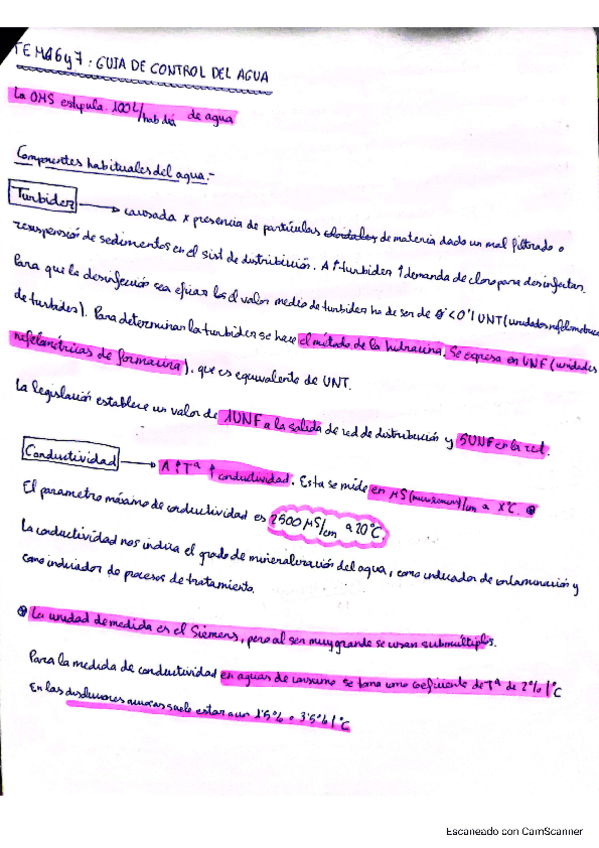 TEMA 6 y 7: GUIA DE CONTROL DEL AGUA
La OMS estipula 100 L/hab día de agua
Componentes habituales del agua.-
Turbidez → causada x presencia de partículas de materia dado un mal filtrado o
resuspensión de sedimentos en el sist de distribución. A ↑ turbidez ↑ demanda de cloro para desinfectar.
Para que la desinfección sea eficaz el valor medio de turbidez ha de ser de <0'1 UNT (unidades nefelometricas
de turbidez). Para determinar la turbidez se hace el método de la hidracina. Se expresa en UNF (unidades
nefelométricas de formacina). que es equivalente de UNT.
La legislación establece un valor de 1UNF a la salida de red de distribución y 5UNF en la red.
Conductividad → A ↑ Tª ↑ conductividad. Esta se mide en μS (microsiemens)/cm a XºC.
El parametro máximo de conductividad es 2500 μS/cm a 20ºC.
La conductividad nos indica el grado de mineralización del agua, como indicador de contaminación y
como indicador de procesos de tratamiento.
La unidad de medida es el Siemens, pero al ser muy grande se usan submúltiplos.
Para la medida de conductividad en aguas de consumo se toma como coeficiente de Tª de 2%/ºC
En las disoluciones acuosas suele estar 1'5% o 3'5%/ºC
Escaneado con CamScanner